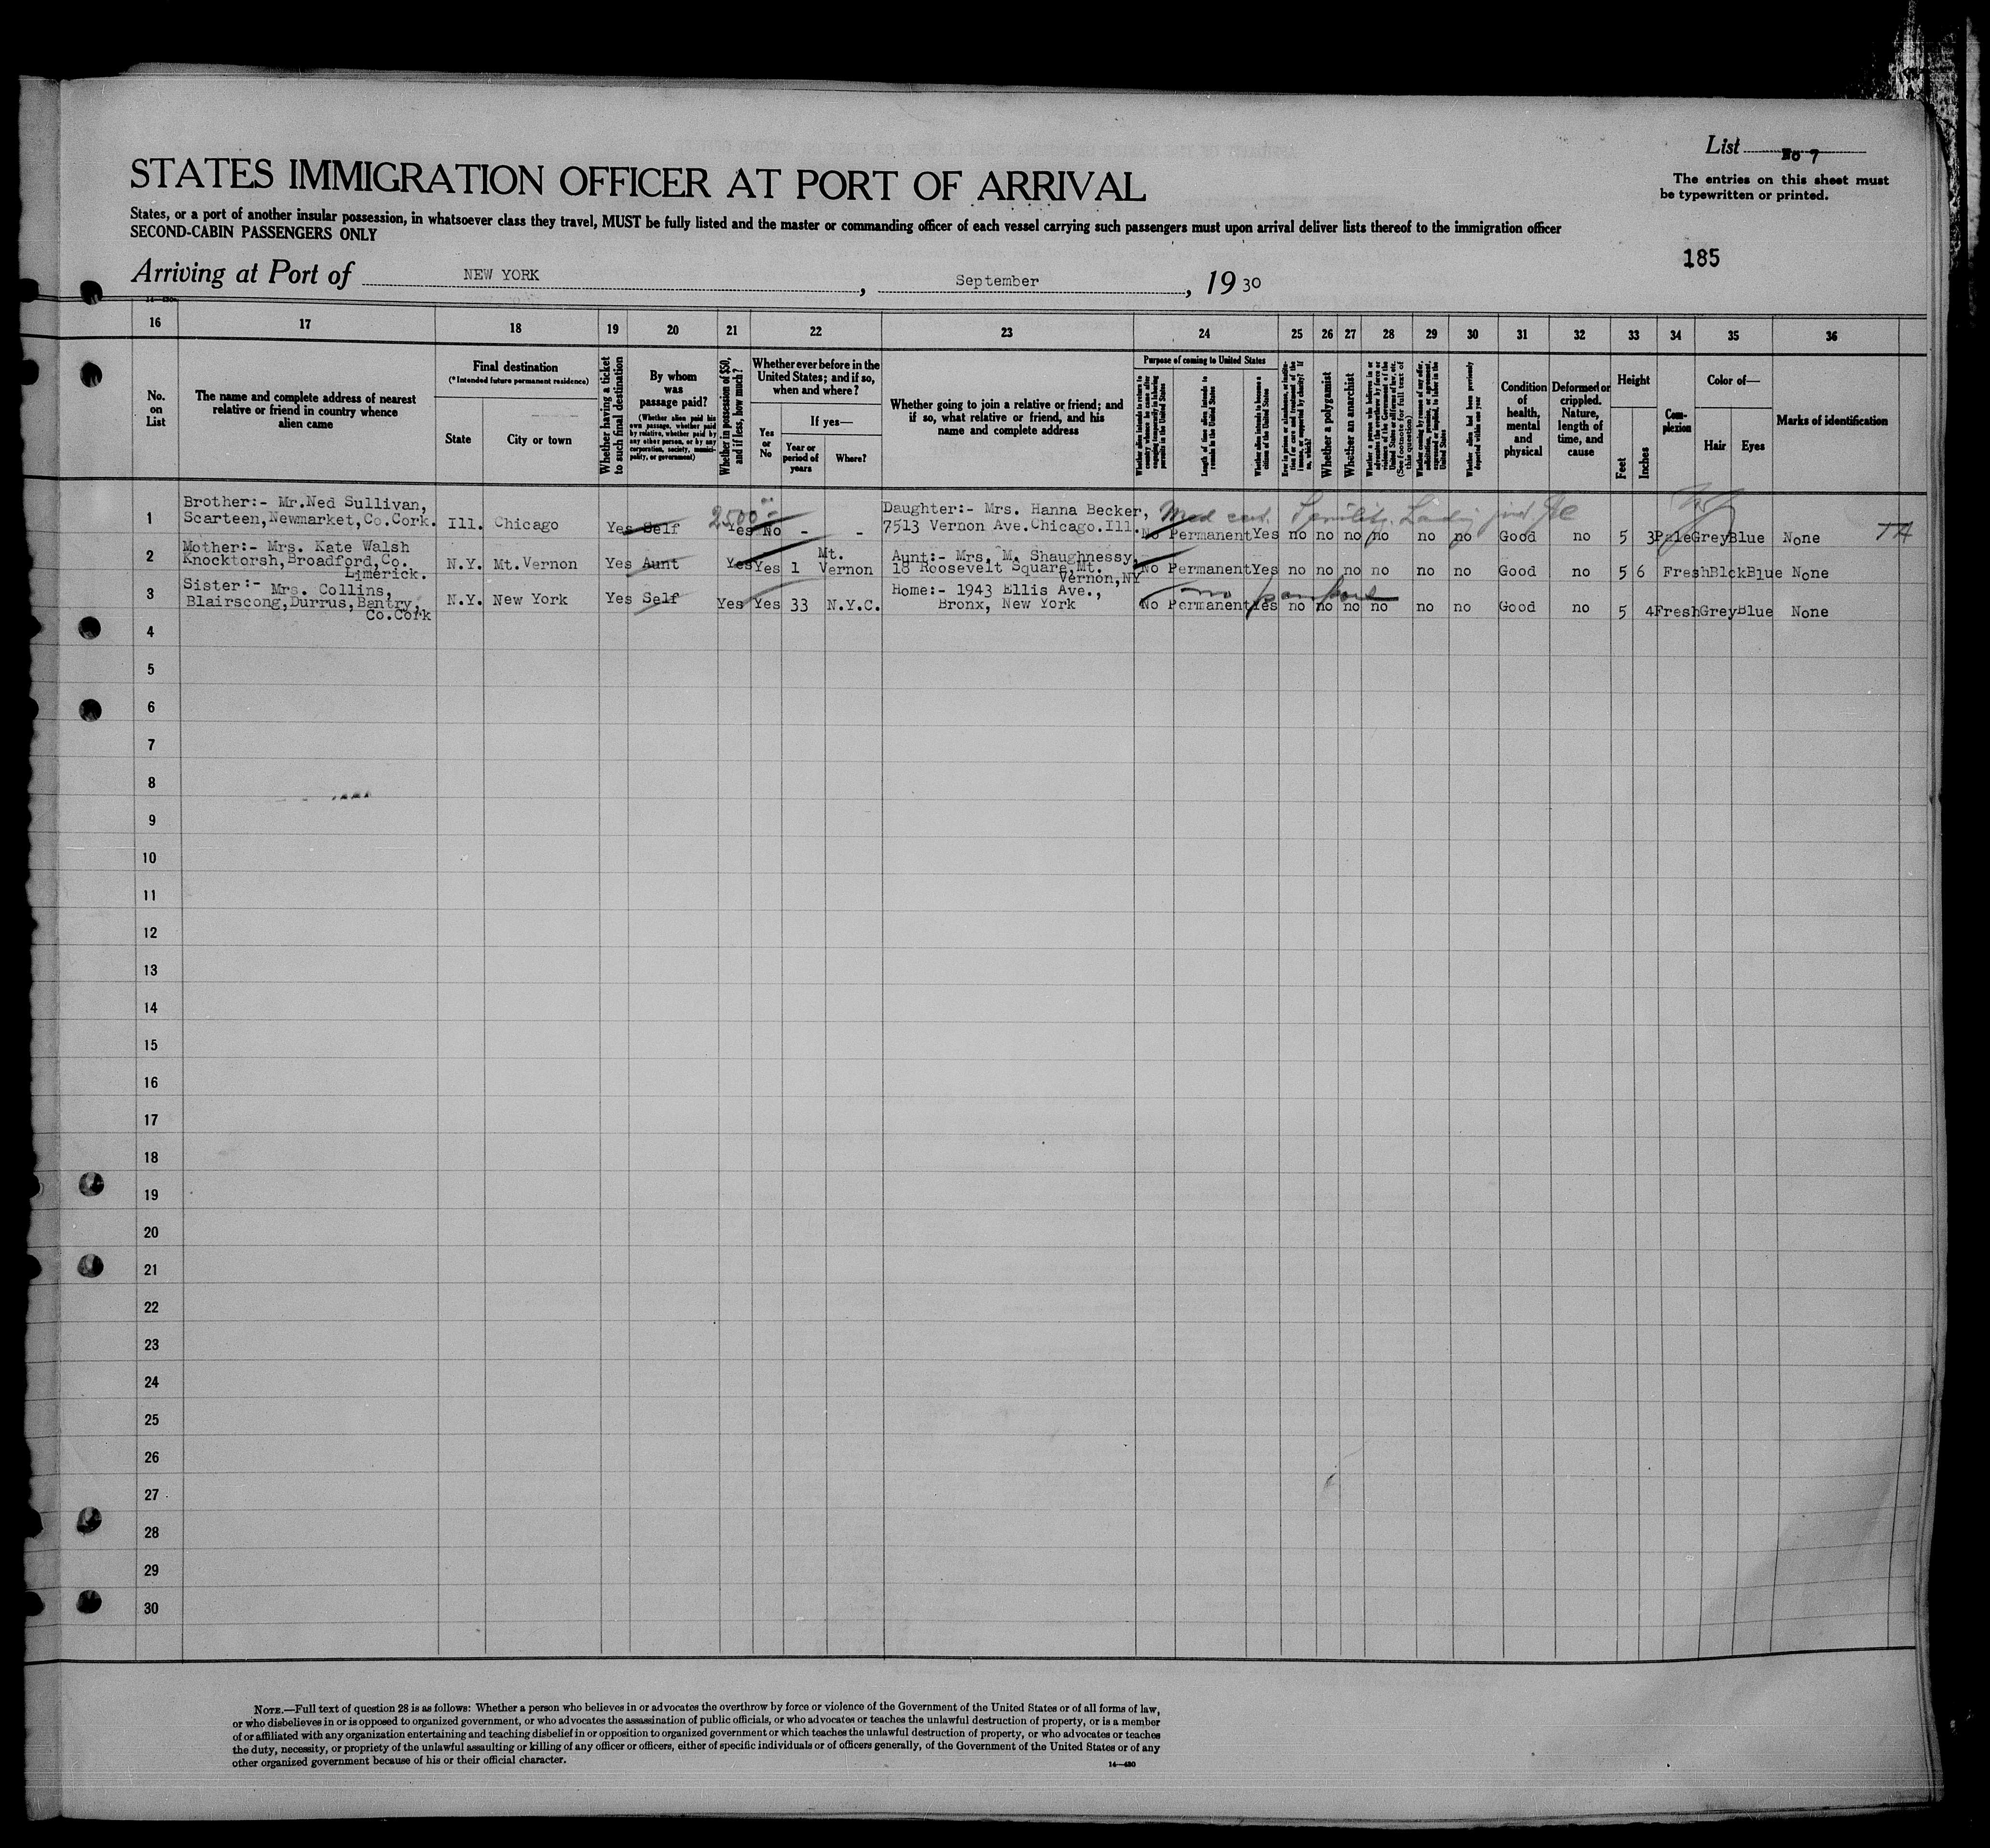 List No 7
The entries on this sheet must
be typewritten or printed.
STATES IMMIGRATION OFFICER AT PORT OF ARRIVAL
States, or a port of another insular possession, in whatsoever class they travel, MUST be fully listed and the master or commanding officer of each vessel carrying such passengers must upon arrival deliver lists thereof to the immigration officer
SECOND-CABIN PASSENGERS ONLY
185
Arriving at Port of NEW YORK, September, 1930
14—430
16 17 18 19 20 21 22 23 24 25 26 27 28 29 30 31 32 33 34 35 36
No.
on
List
The name and complete address of nearest
relative or friend in country whence
alien came
Final destination
(*Intended future permanent residence)
State
City or town
Whether having a ticket
to such final destination
By whom
was
passage paid?
(Whether alien paid his
own passage, whether paid
by relative, whether paid by
any other person, or by any
corporation, society, munici-
pality, or government)
Whether in possession of $50,
and if less, how much?
Whether ever before in the
United States; and if so,
when and where?
Yes
or
No
If yes—
Year or
period of
years
Where?
Whether going to join a relative or friend; and
if so, what relative or friend, and his
name and complete address
Purpose of coming to United States
Whether alien intends to return to
country whence he came after
engaging temporarily in laboring
pursuits in the United States
Length of time alien intends to
remain in the United States
Whether alien intends to become a
citizen of the United States
Ever in prison or almshouse, or institu-
tion for care and treatment of the
insane, or supported by charity? If
so, which?
Whether a polygamist
Whether an anarchist
Whether a person who believes in or
advocates the overthrow by force or
violence of the Government of the
United States or all forms of law, etc.
(See footnote for full text of
this question)
Whether coming by reason of any offer,
solicitation, promise, or agreement,
expressed or implied, to labor in the
United States
Whether alien had been previously
deported within one year
Condition
of
health,
mental
and
physical
Deformed or
crippled.
Nature,
length of
time, and
cause
Height
Feet
Inches
Com-
plexion
Color of—
Hair
Eyes
Marks of identification
1
Brother:- Mr.Ned Sullivan,
Scarteen,Newmarket,Co.Cork.
Ill. Chicago Yes Self 2500 Yes No - -
Daughter:- Mrs. Hanna Becker,
7513 Vernon Ave.Chicago.Ill.
Med cert. Senility.
No Permanent Yes no no no no no no Good no 5 3 Pale Grey Blue None
2
Mother:- Mrs. Kate Walsh
Knocktorsh,Broadford,Co.
Limerick.
N.Y. Mt.Vernon Yes Aunt Yes Yes 1 Mt.
Vernon
Aunt:- Mrs, M. Shaughnessy,
18 Roosevelt Square,Mt.
Vernon,NY
No Permanent Yes no no no no no no Good no 5 6 Fresh Blck Blue None
3
Sister:- Mrs. Collins,
Blairscong,Durrus,Bantry,
Co.Cork
N.Y. New York Yes Self Yes Yes 33 N.Y.C.
Home:- 1943 Ellis Ave.,
Bronx, New York
No Permanent Yes no no no no no no Good no 5 4 Fresh Grey Blue None
4
5
6
7
8
9
10
11
12
13
14
15
16
17
18
19
20
21
22
23
24
25
26
27
28
29
30
NOTE.—Full text of question 28 is as follows: Whether a person who believes in or advocates the overthrow by force or violence of the Government of the United States or of all forms of law,
or who disbelieves in or is opposed to organized government, or who advocates the assassination of public officials, or who advocates or teaches the unlawful destruction of property, or is a member
of or affiliated with any organization entertaining and teaching disbelief in or opposition to organized government or which teaches the unlawful destruction of property, or who advocates or teaches
the duty, necessity, or propriety of the unlawful assaulting or killing of any officer or officers, either of specific individuals or of officers generally, of the Government of the United States or of any
other organized government because of his or their official character.
14—430